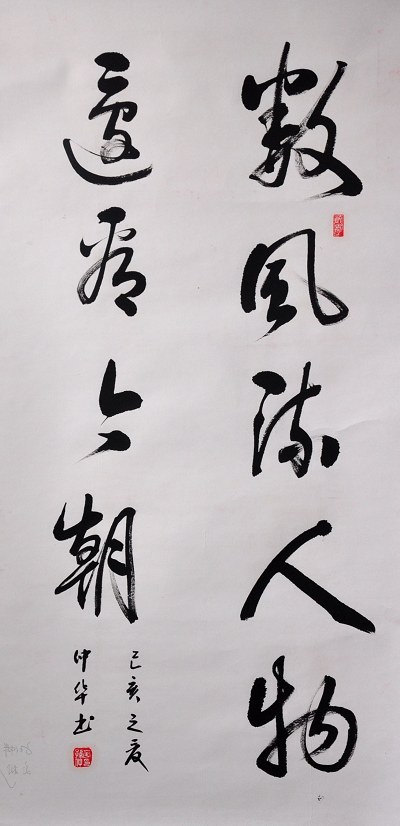 數風流人物
還看今朝
己亥之夏
仲华书